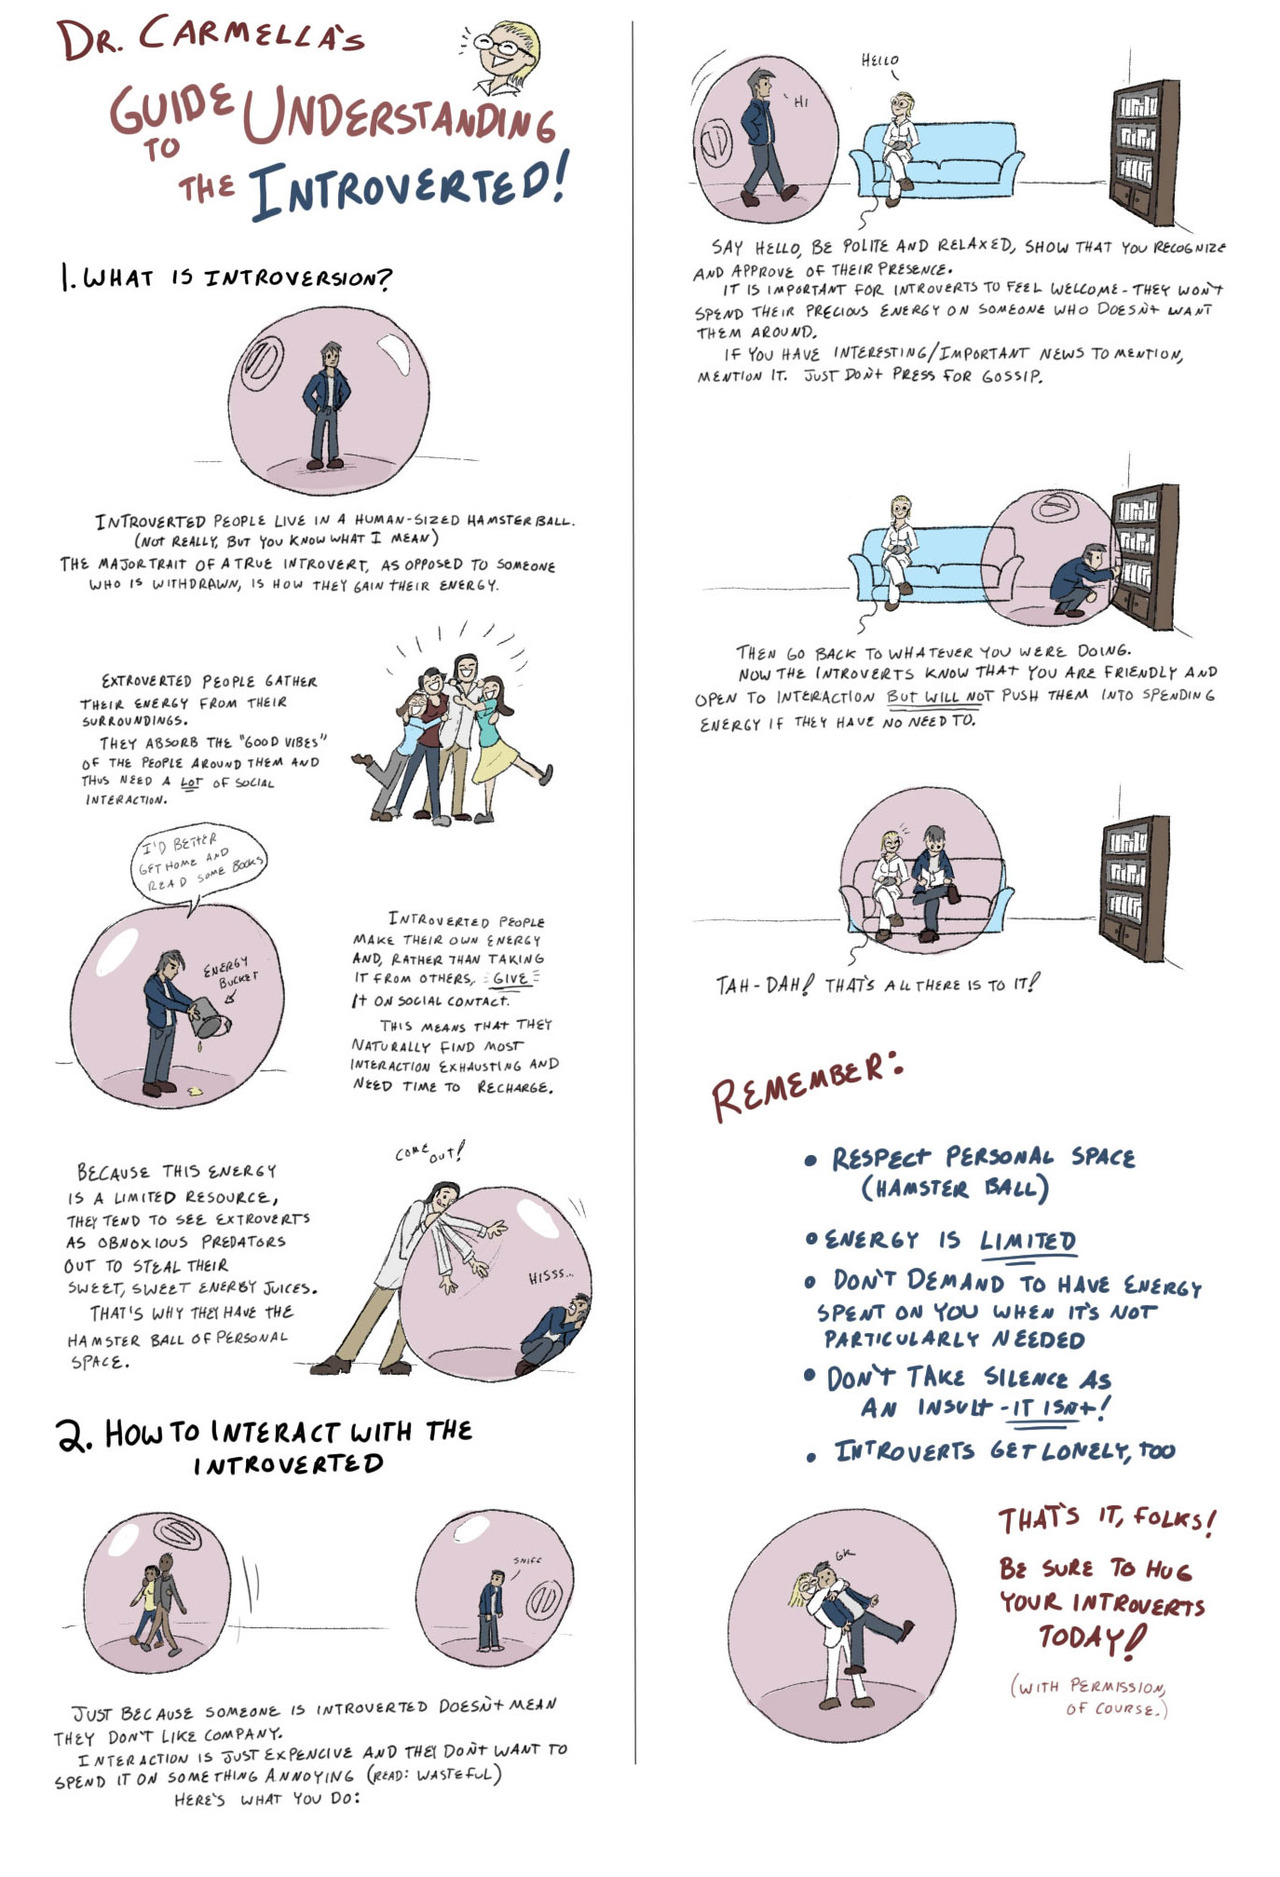 DR. CARMELLA'S
GUIDE
TO
UNDERSTANDING
THE INTROVERTED!
1. WHAT IS INTROVERSION?
INTROVERTED PEOPLE LIVE IN A HUMAN-SIZED HAMSTER BALL.
(NOT REALLY, BUT YOU KNOW WHAT I MEAN)
THE MAJOR TRAIT OF A TRUE INTROVERT, AS OPPOSED TO SOMEONE
WHO IS WITHDRAWN, IS HOW THEY GAIN THEIR ENERGY.
EXTROVERTED PEOPLE GATHER
THEIR ENERGY FROM THEIR
SURROUNDINGS.
THEY ABSORB THE "GOOD VIBES"
OF THE PEOPLE AROUND THEM AND
THUS NEED A LOT OF SOCIAL
INTERACTION.
I'D BETTER
GET HOME AND
READ SOME BOOKS
ENERGY
BUCKET
INTROVERTED PEOPLE
MAKE THEIR OWN ENERGY
AND, RATHER THAN TAKING
IT FROM OTHERS, GIVE
IT ON SOCIAL CONTACT.
THIS MEANS THAT THEY
NATURALLY FIND MOST
INTERACTION EXHAUSTING AND
NEED TIME TO RECHARGE.
BECAUSE THIS ENERGY
IS A LIMITED RESOURCE,
THEY TEND TO SEE EXTROVERTS
AS OBNOXIOUS PREDATORS
OUT TO STEAL THEIR
SWEET, SWEET ENERGY JUICES.
THAT'S WHY THEY HAVE THE
HAMSTER BALL OF PERSONAL
SPACE.
COME OUT!
HISSS...
2. HOW TO INTERACT WITH THE
INTROVERTED
SNIFF
JUST BECAUSE SOMEONE IS INTROVERTED DOESN'T MEAN
THEY DON'T LIKE COMPANY.
INTERACTION IS JUST EXPENCIVE AND THEY DON'T WANT TO
SPEND IT ON SOMETHING ANNOYING (READ: WASTEFUL)
HERE'S WHAT YOU DO:
HELLO
HI
SAY HELLO, BE POLITE AND RELAXED, SHOW THAT YOU RECOGNIZE
AND APPROVE OF THEIR PRESENCE.
IT IS IMPORTANT FOR INTROVERTS TO FEEL WELCOME - THEY WON'T
SPEND THEIR PRECIOUS ENERGY ON SOMEONE WHO DOESN'T WANT
THEM AROUND.
IF YOU HAVE INTERESTING/IMPORTANT NEWS TO MENTION,
MENTION IT. JUST DON'T PRESS FOR GOSSIP.
THEN GO BACK TO WHATEVER YOU WERE DOING.
NOW THE INTROVERTS KNOW THAT YOU ARE FRIENDLY AND
OPEN TO INTERACTION BUT WILL NOT PUSH THEM INTO SPENDING
ENERGY IF THEY HAVE NO NEED TO.
TAH-DAH! THAT'S ALL THERE IS TO IT!
REMEMBER:
• RESPECT PERSONAL SPACE
(HAMSTER BALL)
• ENERGY IS LIMITED
• DON'T DEMAND TO HAVE ENERGY
SPENT ON YOU WHEN IT'S NOT
PARTICULARLY NEEDED
• DON'T TAKE SILENCE AS
AN INSULT - IT ISN'T!
• INTROVERTS GET LONELY, TOO
GK
THAT'S IT, FOLKS!
BE SURE TO HUG
YOUR INTROVERTS
TODAY!
(WITH PERMISSION,
OF COURSE.)